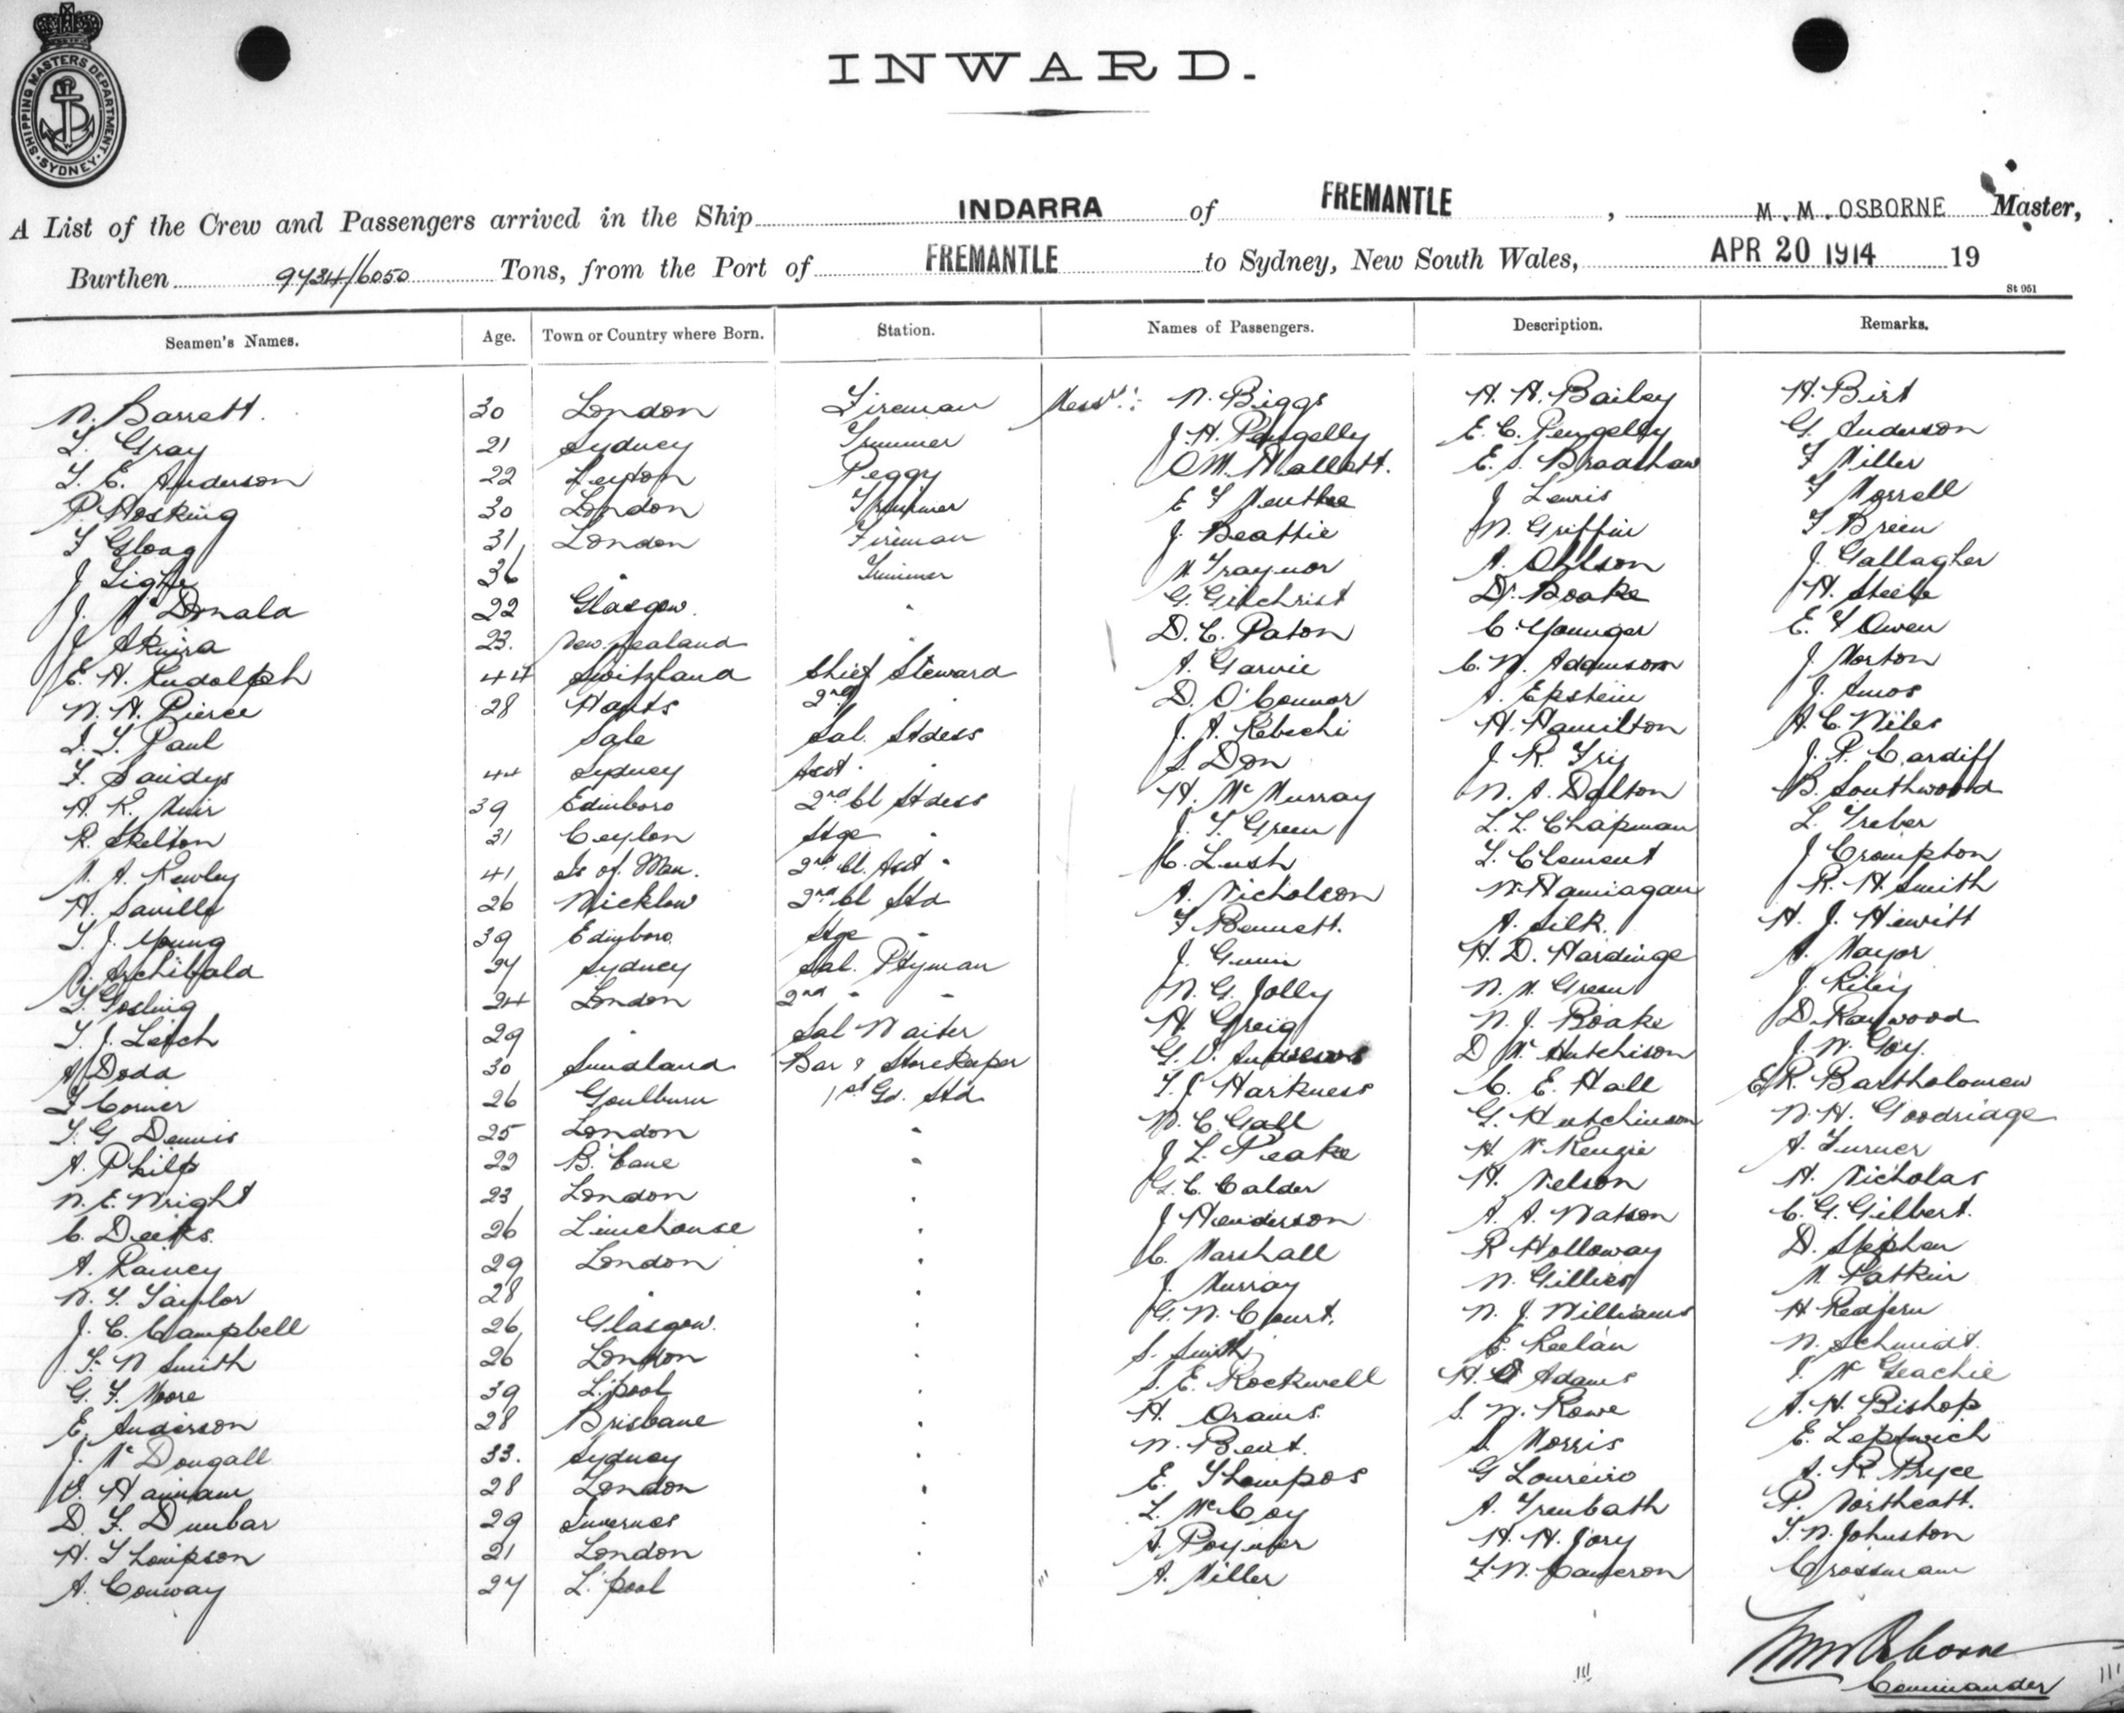 SHIPPING MASTERS DEPARTMENT · SYDNEY ·
INWARD.
A List of the Crew and Passengers arrived in the Ship INDARRA of FREMANTLE , M.M.OSBORNE Master,
Burthen 9734/6050 Tons, from the Port of FREMANTLE to Sydney, New South Wales, APR 20 1914 19
St 051
Seamen's Names. Age. Town or Country where Born. Station. Names of Passengers. Description. Remarks.
W. Barrett. 30 London Fireman Messrs: W. Biggs H. H. Bailey H. Birt
L. Gray 21 Sydney Trimmer J. H. Pengelly E. C. Pengelley G. Anderson
T. E. Anderson 22 Leyton Peggy O M. Hallett. E. S. Bradshaw F Miller
P. Hosking 30 London Trimmer E F J Lewis F Morrell
F Gloag 31 London Fireman J. Beattie W. Griffin F Breen
J 36 " Trimmer W Traynor A. Ohlson J. Gallagher
J. McDonald 22 Glasgow. " G. Gilchrist Dr. Boake H. Steele
J 23. New Zealand " D. C. Paton C Younger E. F Owen
E. H. Rudolph 44 Switzland Chief Steward A. Garvie C. W. Adamson J Morton
W. H. Pierce 28 Hants 2nd " D. O'Connor A. Epstein J. Amos
I. T. Paul Sale Sal. Stdess J. A. Rebechi H. Hamilton A. C. Niles
F. Sandys 44 Sydney Asst " " S. Don J. R. Try J. P. Cardiff
A. R. Muir 39 Edinboro 2nd Cl Stdess H. McMurray W. A. Dalton B. Southwood
R. Skelton 31 Ceylon Stge " J. T. Green L. L. Chapman L. Treber
M. A. Kewley 41 Is of Man. 2nd Cl. Asst " C. Lush L. Clement J Crompton
H. Saville 26 Wicklow 2nd Cl Std A. Nicholson W. R. H. Smith
T. J. Young 39 Edinboro Stge " F Bennett. A. Silk. H. J. Hewitt
A. Archibald 37 Sydney Sal. Ptyman J. Gunn H. D. Hardinge A. Mayor
L. Gosling 24 London 2nd " " W. G. Jolly W. M. Green J. Riley
T. J. Leach 29 " Sal Waiter H. Greig W. J. Boake D. Raywood
A Dodd 30 Sundland Bar & Storekeeper G. S. Andrews D McHutchison J. W. Goy.
F Corner 26 Goulburn 1st Gd. Std T. J. Harkness C. E. Hall E R. Bartholomew
T. G Dennis 25 London " W. C. Gall G. Hutchinson W. H. Goodridge
A. Philp 22 B. Cane " J L. Peake H. McKenzie A. Turner
W. E. Wright 23 London " G. C. Calder H. Nelson H. Nicholas
C. Deeks. 26 Limehouse " J Henderson A. A. Watson C. G. Gilbert.
A. Rainey 29 London " C. Marshall R Holloway D. Stephen
W. T. Taylor 28 " " J. Murray W. Gillies M. Patkin
J. C. Campbell 26 Glasgow. " G. W. Court. W. J. Williams H Redfern
F. W Smith 26 London " S. Smith E. Keelan W. Schmidt.
G. F. Moore 39 L'pool " S. E. Rockwell H. O Adams J. McGeachie
E. Anderson 28 Brisbane " H. Orams. S. W. Rowe A. H. Bishop
J. McDougall 33. Sydney " W. Bent. A. Morris E. Leptwich
V. Hannam 28 London " E. Thompson G Loureiro A. R Bryce
D. F. Dunbar 29 Invernes " L. McCoy A. Trenbath P. Northcott.
H. Thompson 21 London " A. Poynter H. H. Jory T. W. Johnston
A. Conway 27 L'pool " A. Miller F. W. Cameron Crossman
MM Osborne
Commander